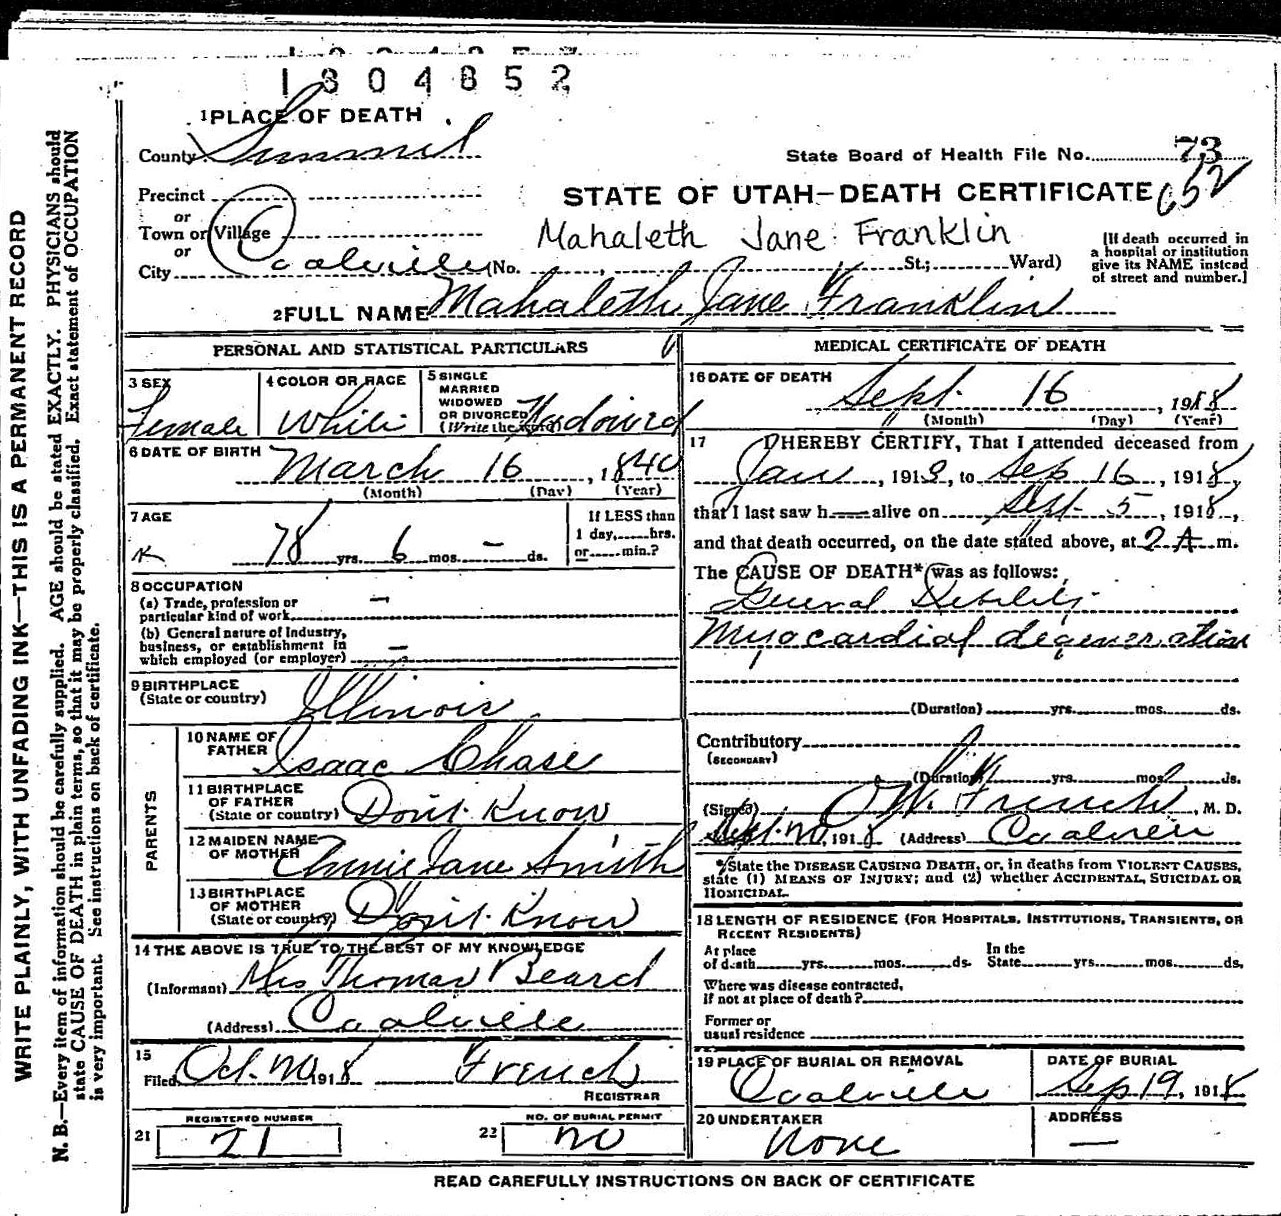 1804852
1 PLACE OF DEATH
County Summit
State Board of Health File No. 73
652
Precinct
or
Town or Village
or
City Coalville (No. , St.; Ward)
STATE OF UTAH—DEATH CERTIFICATE
Mahaleth Jane Franklin
[If death occurred in
a hospital or institution
give its NAME instead
of street and number.]
2 FULL NAME Mahaleth Jane Franklin
PERSONAL AND STATISTICAL PARTICULARS
3 SEX
Female
4 COLOR OR RACE
White
5 SINGLE
MARRIED
WIDOWED
OR DIVORCED
(Write the word) Widowed
6 DATE OF BIRTH March 16, 1840
(Month) (Day) (Year)
7 AGE
78 yrs. 6 mos. — ds.
If LESS than
1 day, hrs.
or min.?
8 OCCUPATION
(a) Trade, profession or
particular kind of work —
(b) General nature of Industry,
business, or establishment in
which employed (or employer) —
9 BIRTHPLACE
(State or country) Illinois
PARENTS
10 NAME OF
FATHER Isaac Chase
11 BIRTHPLACE
OF FATHER
(State or country) Don't Know
12 MAIDEN NAME
OF MOTHER Annie Jane Smith
13 BIRTHPLACE
OF MOTHER
(State or country) Don't Know
14 THE ABOVE IS TRUE TO THE BEST OF MY KNOWLEDGE
(Informant) Mrs Thomas Beard
(Address) Coalville
15
Filed Oct. 1918 French
REGISTRAR
REGISTERED NUMBER
21 21
NO. OF BURIAL PERMIT
22 no
MEDICAL CERTIFICATE OF DEATH
16 DATE OF DEATH Sept. 16, 1918
(Month) (Day) (Year)
17 I HEREBY CERTIFY, That I attended deceased from
Jan, 1913, to Sep 16, 1918,
that I last saw h alive on Sept. 5, 1918,
and that death occurred, on the date stated above, at 2 A m.
The CAUSE OF DEATH* was as follows:
General Debility
Myocardial degeneration
(Duration) yrs. mos. ds.
Contributory
(SECONDARY)
(Duration) yrs. mos. ds.
(Signed) French, M. D.
1918 (Address) Coalville
*State the DISEASE CAUSING DEATH, or, in deaths from VIOLENT CAUSES,
state (1) MEANS OF INJURY; and (2) whether ACCIDENTAL, SUICIDAL OR
HOMICIDAL.
18 LENGTH OF RESIDENCE (FOR HOSPITALS, INSTITUTIONS, TRANSIENTS, OR
RECENT RESIDENTS)
At place
of death yrs. mos. ds.
In the
State yrs. mos. ds.
Where was disease contracted,
if not at place of death?
Former or
usual residence
19 PLACE OF BURIAL OR REMOVAL
Coalville
DATE OF BURIAL
Sep 19, 1918
20 UNDERTAKER
None
ADDRESS
—
READ CAREFULLY INSTRUCTIONS ON BACK OF CERTIFICATE
WRITE PLAINLY, WITH UNFADING INK—THIS IS A PERMANENT RECORD
N. B.—Every item of information should be carefully supplied. AGE should be stated EXACTLY. PHYSICIANS should
state CAUSE OF DEATH in plain terms, so that it may be properly classified. Exact statement of OCCUPATION
is very important. See instructions on back of certificate.